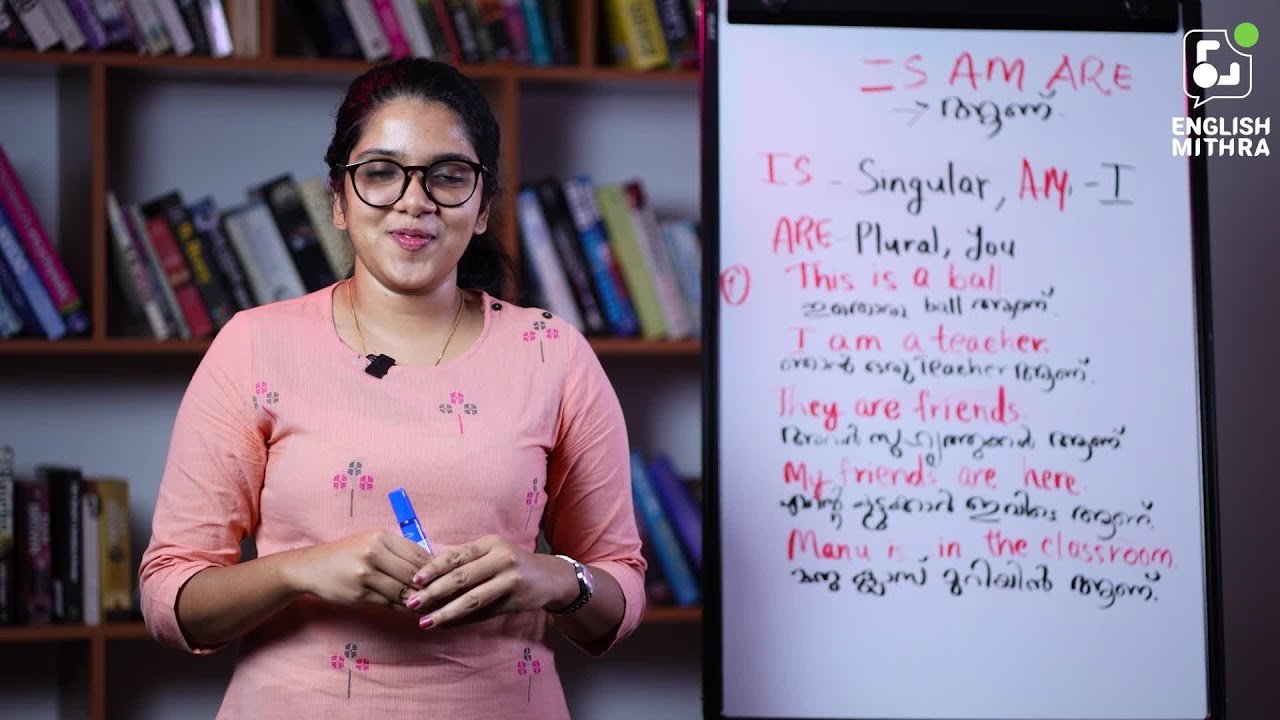 IS AM ARE
→ ആണ്
IS - Singular, AM - I
ARE - Plural, You
① This is a ball
ഇതൊരു ball ആണ്.
I am a teacher.
ഞാൻ ഒരു Teacher ആണ്.
They are friends.
അവർ സുഹൃത്തുക്കൾ ആണ്
My friends are here.
എന്റെ കൂട്ടുകാർ ഇവിടെ ആണ്.
Manu is in the classroom.
മനു ക്ലാസ് മുറിയിൽ ആണ്.
ENGLISH
MITHRA